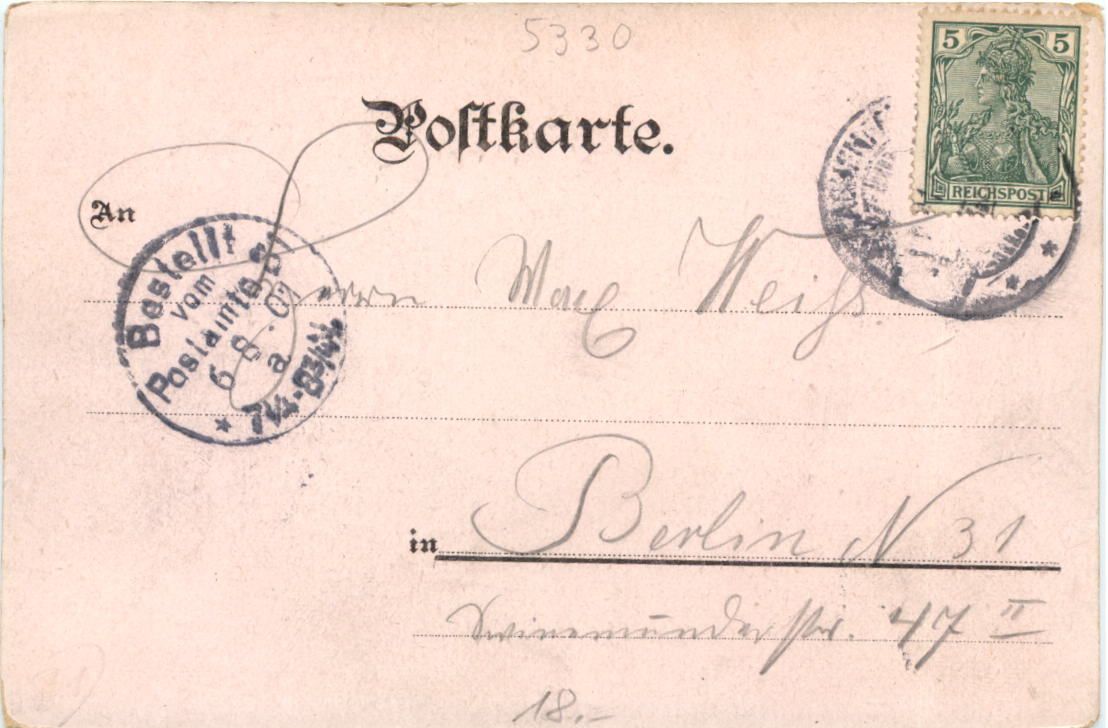 5330
Postkarte.
5 5
REICHSPOST
An
Bestellt
vom
Postamte
6 8
a
7¼-8¾
Herrn Max Weiss.
in Berlin N 31
Swinemünderstr. 47 II
18.-